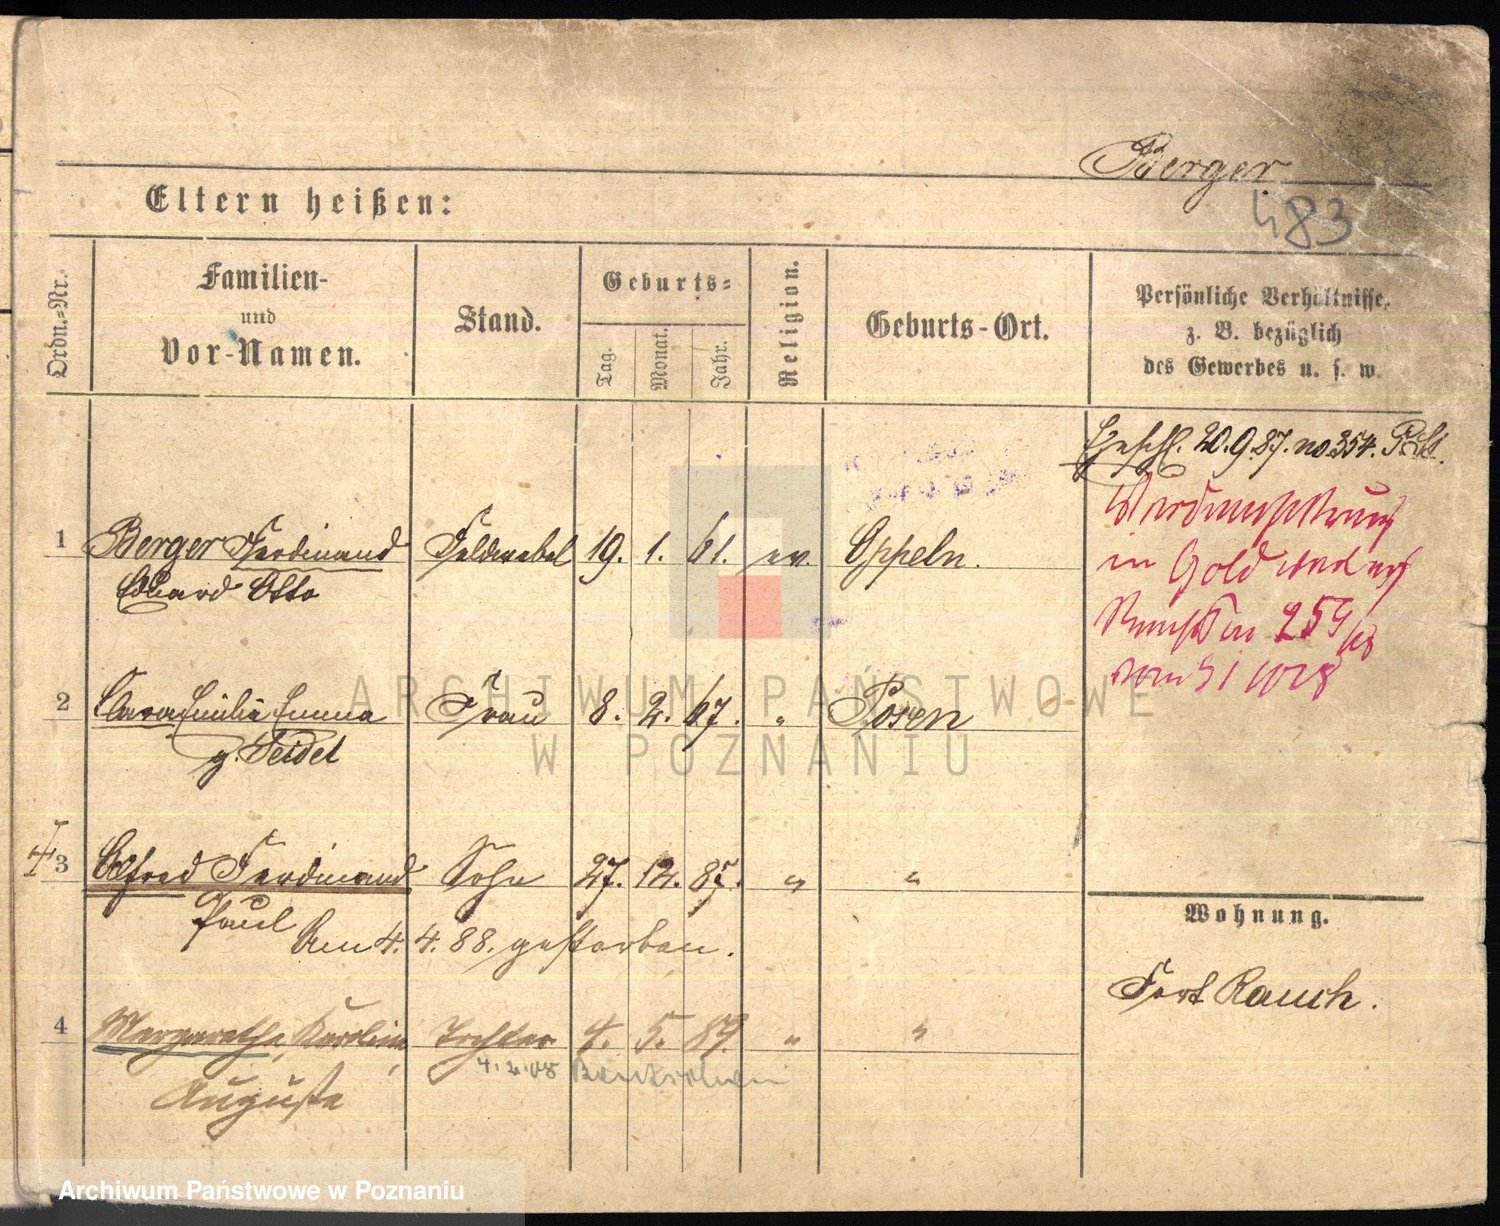 Berger
483
Eltern heißen:
Ordn.=Nr.
Familien-
und
Vor-Namen.
Stand.
Geburts=
Tag.
Monat.
Jahr.
Religion.
Geburts-Ort.
Persönliche Verhältnisse,
z. B. bezüglich
des Gewerbes u. s. w.
Eheschl. 20.9.87. no 354.
in Gold
1 Berger Ferdinand Feldwebel 19. 1. 61. ev. Oppeln.
Eduard Otto
2 Clara Emilie Emma Frau 8. 2. 67. " Posen
g. Seidel
3 Alfred Ferdinand Sohn 27. 12. 87. " "
Paul
Am 4. 4. 88. gestorben.
Wohnung.
Fort Rauch.
4 Margarethe, Karoline, Tochter 4. 5. 89. " "
4.2.08 Bentschen
Auguste
ARCHIWUM PAŃSTWOWE
W POZNANIU
Archiwum Państwowe w Poznaniu